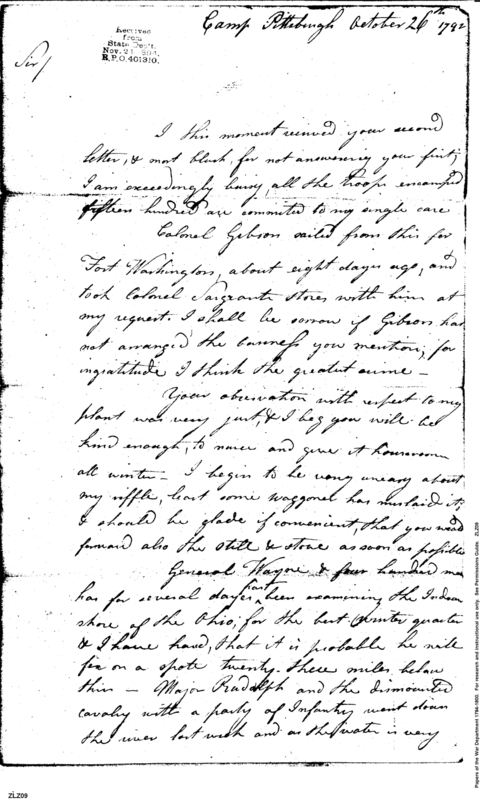 Camp Pittsburgh October 26th 1792
Received
from
State Dept.
Nov. 21
R.P.O. 401310.
Sir/
I this moment received your second
letter, & most blush, for not answering your first;
I am exceedingly busy, all the troop encamped
fifteen hundred are commited to my single care
Colonel Gibson sailed from this for
Fort Washington, about eight days ago, and
took Colonel Sargeants stores with him at
my request. I shall be sorrow if Gibson has
not arranged the business you mention, for
ingratitude I think the greatest crime –
Your observation with respect to my
plant was very just, & I beg you will be
kind enough, to nurse and give it houseroom
all winter – I begin to be very uneasy about
my riffle, least some waggoner has mislaid it;
& should be glade if convenient, that you would
forward also the still & stove as soon as possible
General Wayne & four hundred men
has for several days past been examining the Indian
shore of the Ohio; for the best winter quarter
& I have heard, that it is probable he will
fix on a spote twenty three miles below
this – Major Rudolph and the dismounted
cavalry with a party of Infantry went down
the river last week and as the water is very
ZLZ09
Papers of the War Department 1784-1800. For research and instructional use only. See Permissions Guide. ZLZ09